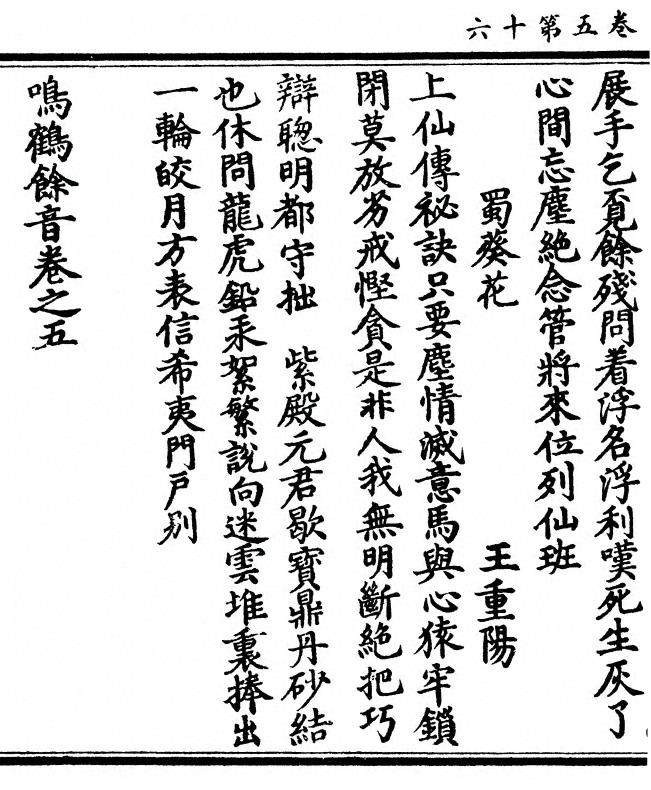 卷五第十六
展手乞覔餘殘問着浮名浮利嘆死生灰了
心間忘塵絶念管將來位列仙班
蜀葵花 王重陽
上仙傳祕訣只要塵情滅意馬與心猿牢鎖
閉莫放劣戒慳貪是非人我無明斷絶把巧
辯聦明都守拙 紫殿元君歇寶鼎丹砂結
也休問龍虎鉛汞絮繁說向迷雲堆裏捧出
一輪皎月方表信希夷門戸别
鳴鶴餘音卷之五